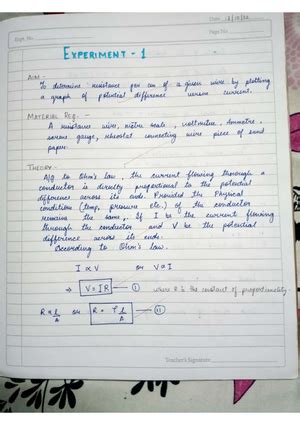 Date 13/10/22
Expt. No.
Page No.
EXPERIMENT - 1
AIM -
To determine resistance per cm of a given wire by plotting
a graph of potential difference versus current.
MATERIAL REQ. -
A resistance wire, metre scale, voltmeter, Ammeter,
screw gauge, rheostat connecting wire piece of sand
paper.
THEORY -
A/Q to Ohm's law, the current flowing through a
conductor is directly proportional to the potential
difference across its ends. Provided the Physical
condition (temp, pressure etc.) of the conductor
remains the same,. If I be the current flowing
through the conductor and V be the potential
difference across its ends.
According to Ohm's law.
I ∝ V or V ∝ I
⇒ V = IR — (I) where R is the constant of proportionality.
R ∝ l/A or R = ρ l/A — (II)
Teacher's Signature